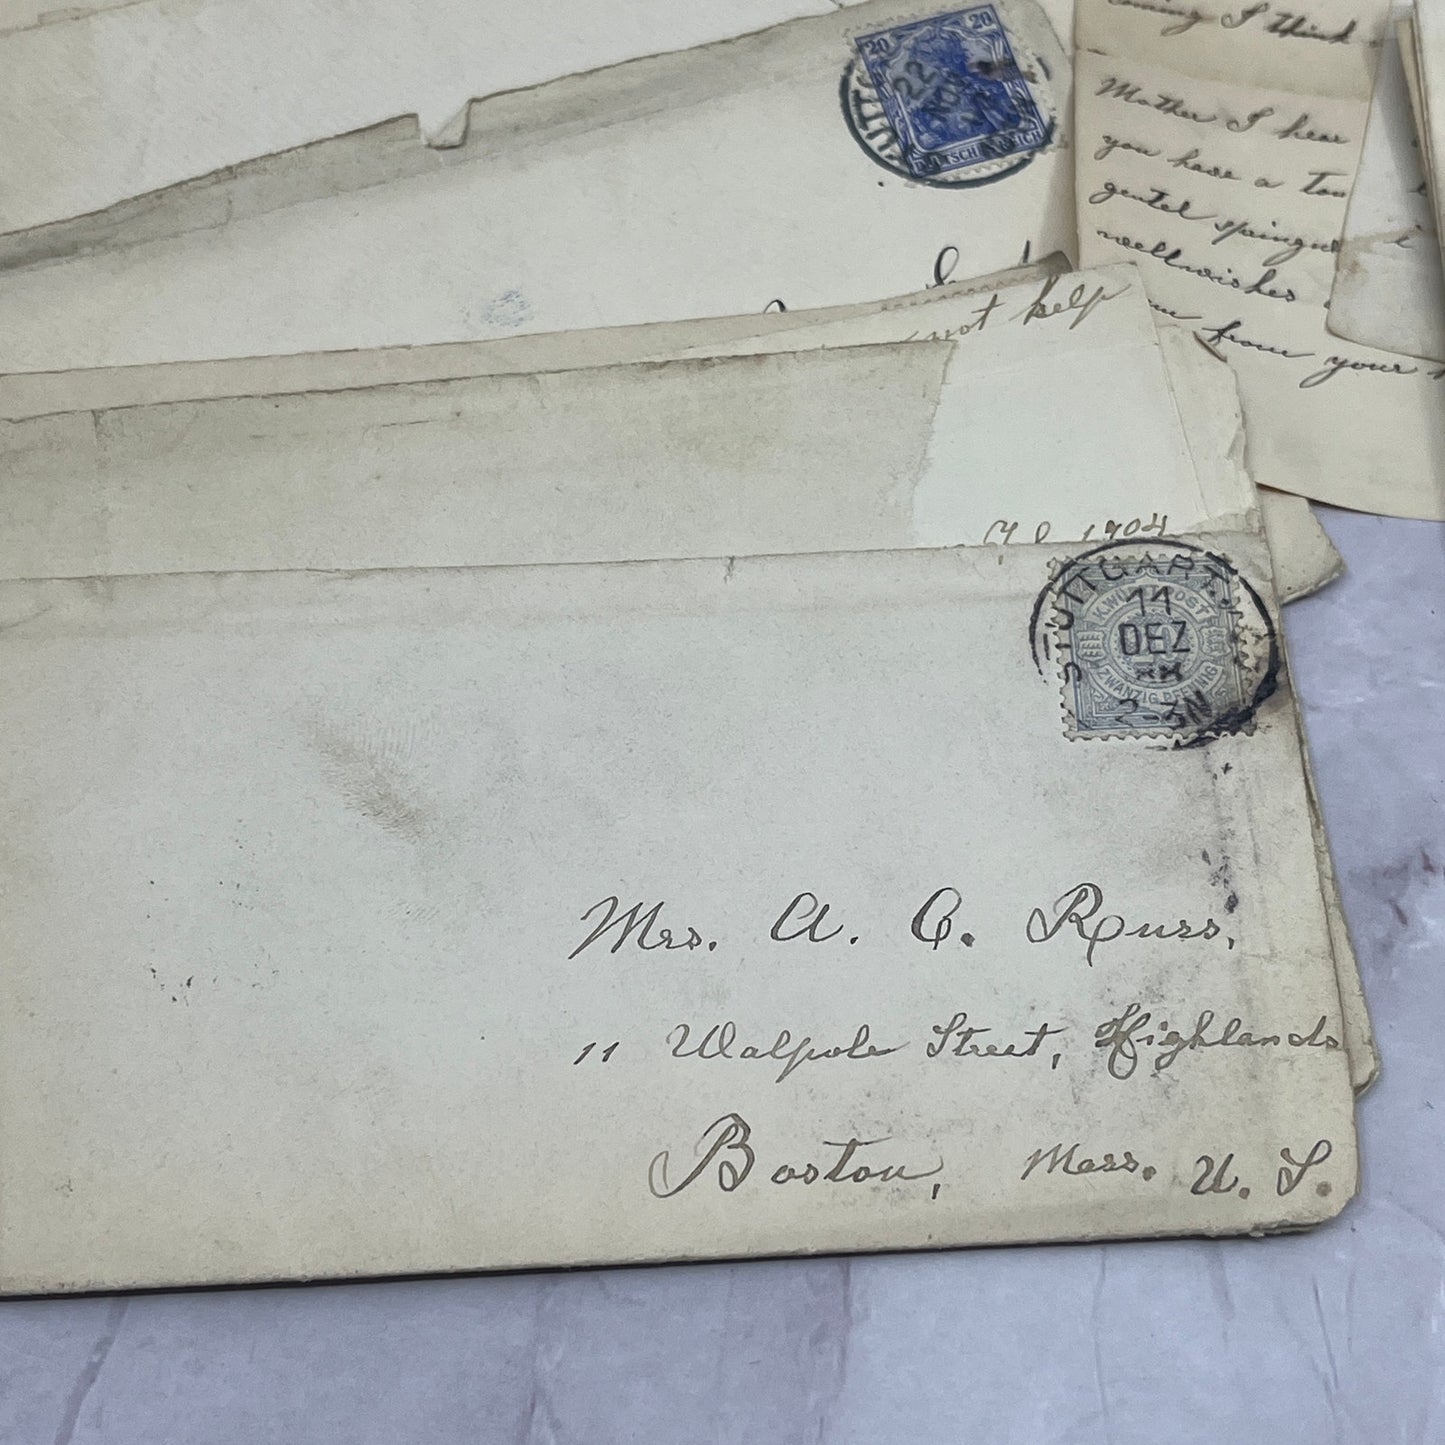 20 20
22
DEUTSCHES REICH
coming I think
Mother I hear
you have a
gentel
wellwishes
from your
not help
1904
STUTTGART.
11
DEZ
2-3N
K. WÜRTT. POST
ZWANZIG PFENNIG
Mrs. A. C. Russ,
11 Walpole Street, Highlands
Boston, Mass. U. S.